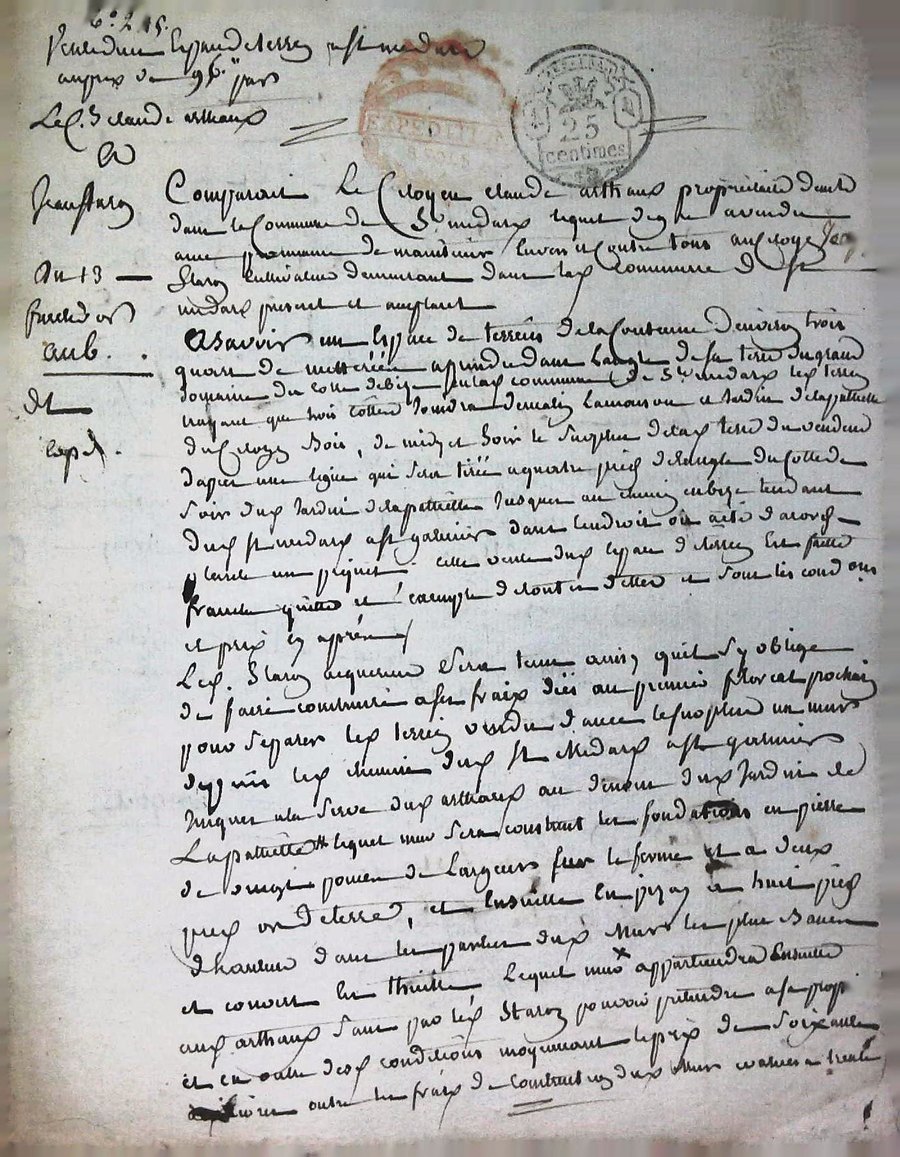 Vente d'un espace de terrein a st medard
au prix de 96 " par
Le C. Claude arthaux
EXPEDITION
25
centimes
a
Jean Staron
Comparait Le Citoyen Claude arthaux propriétaire demt
dans la Commune de St. medard lequel de gré a vendu
avec promesse de maintenir Envers et Contre tous au Citoyen Jean
an 13
Staron Cultivateur demeurant dans lad commune de st
medard present et acceptant
aub.
Asavoir un Espace de terrein de la Contenue denviron trois
quart de metterée aprendre dans langle de sa terre du grand
domaine du cotté de bize en lad commune de St. medard led terrein
nayant que trois cottés Joindra de matin la maison et Jardin de lapattiette
dt
du Citoyen Bois, de midy et Soir le Surplus delad terre du vendeur
exp.
dapres une ligne qui sera tirée a quatre pieds de langle du Cotté de
Soir dud Jardin de lapattiette Jusques au chemin en bize tendant
dud st medard a st galmier dans lendroit ou a été dacord
planté un piquet. cette vente dud espace de terrein Est faitte
franche quitte et exempte de toutes dettes et sous les conditions
et prix cy après
Led. Staron acquereur Sera tenu ainsi quil Sy oblige
de faire construire a ses fraix dici au premier floreal prochain
pour Séparer led terrein vendu davec le surplus un mur
depuis led chemin dud st Medard a st galmier
Jusques a la Serve dud arthaux au dessous dud Jardin de
Lapattiette lequel mur sera construit les fondations en pierre
de vingt pouces de Largeur sur le ferme et a deux
pieds or de terre, et Ensuitte En pizay a huit pieds
dhauteur dans les parties dud Murs les plus Basses
et couvert En thuille Lequel mur appartiendra Ensuitte
aud arthaux Sans que led Staron puisse prétendre a sa propr
et en outre desd conditions moyennant le prix de Soixante
Livres outre les fraix de Construction dud Mur évalués a trente